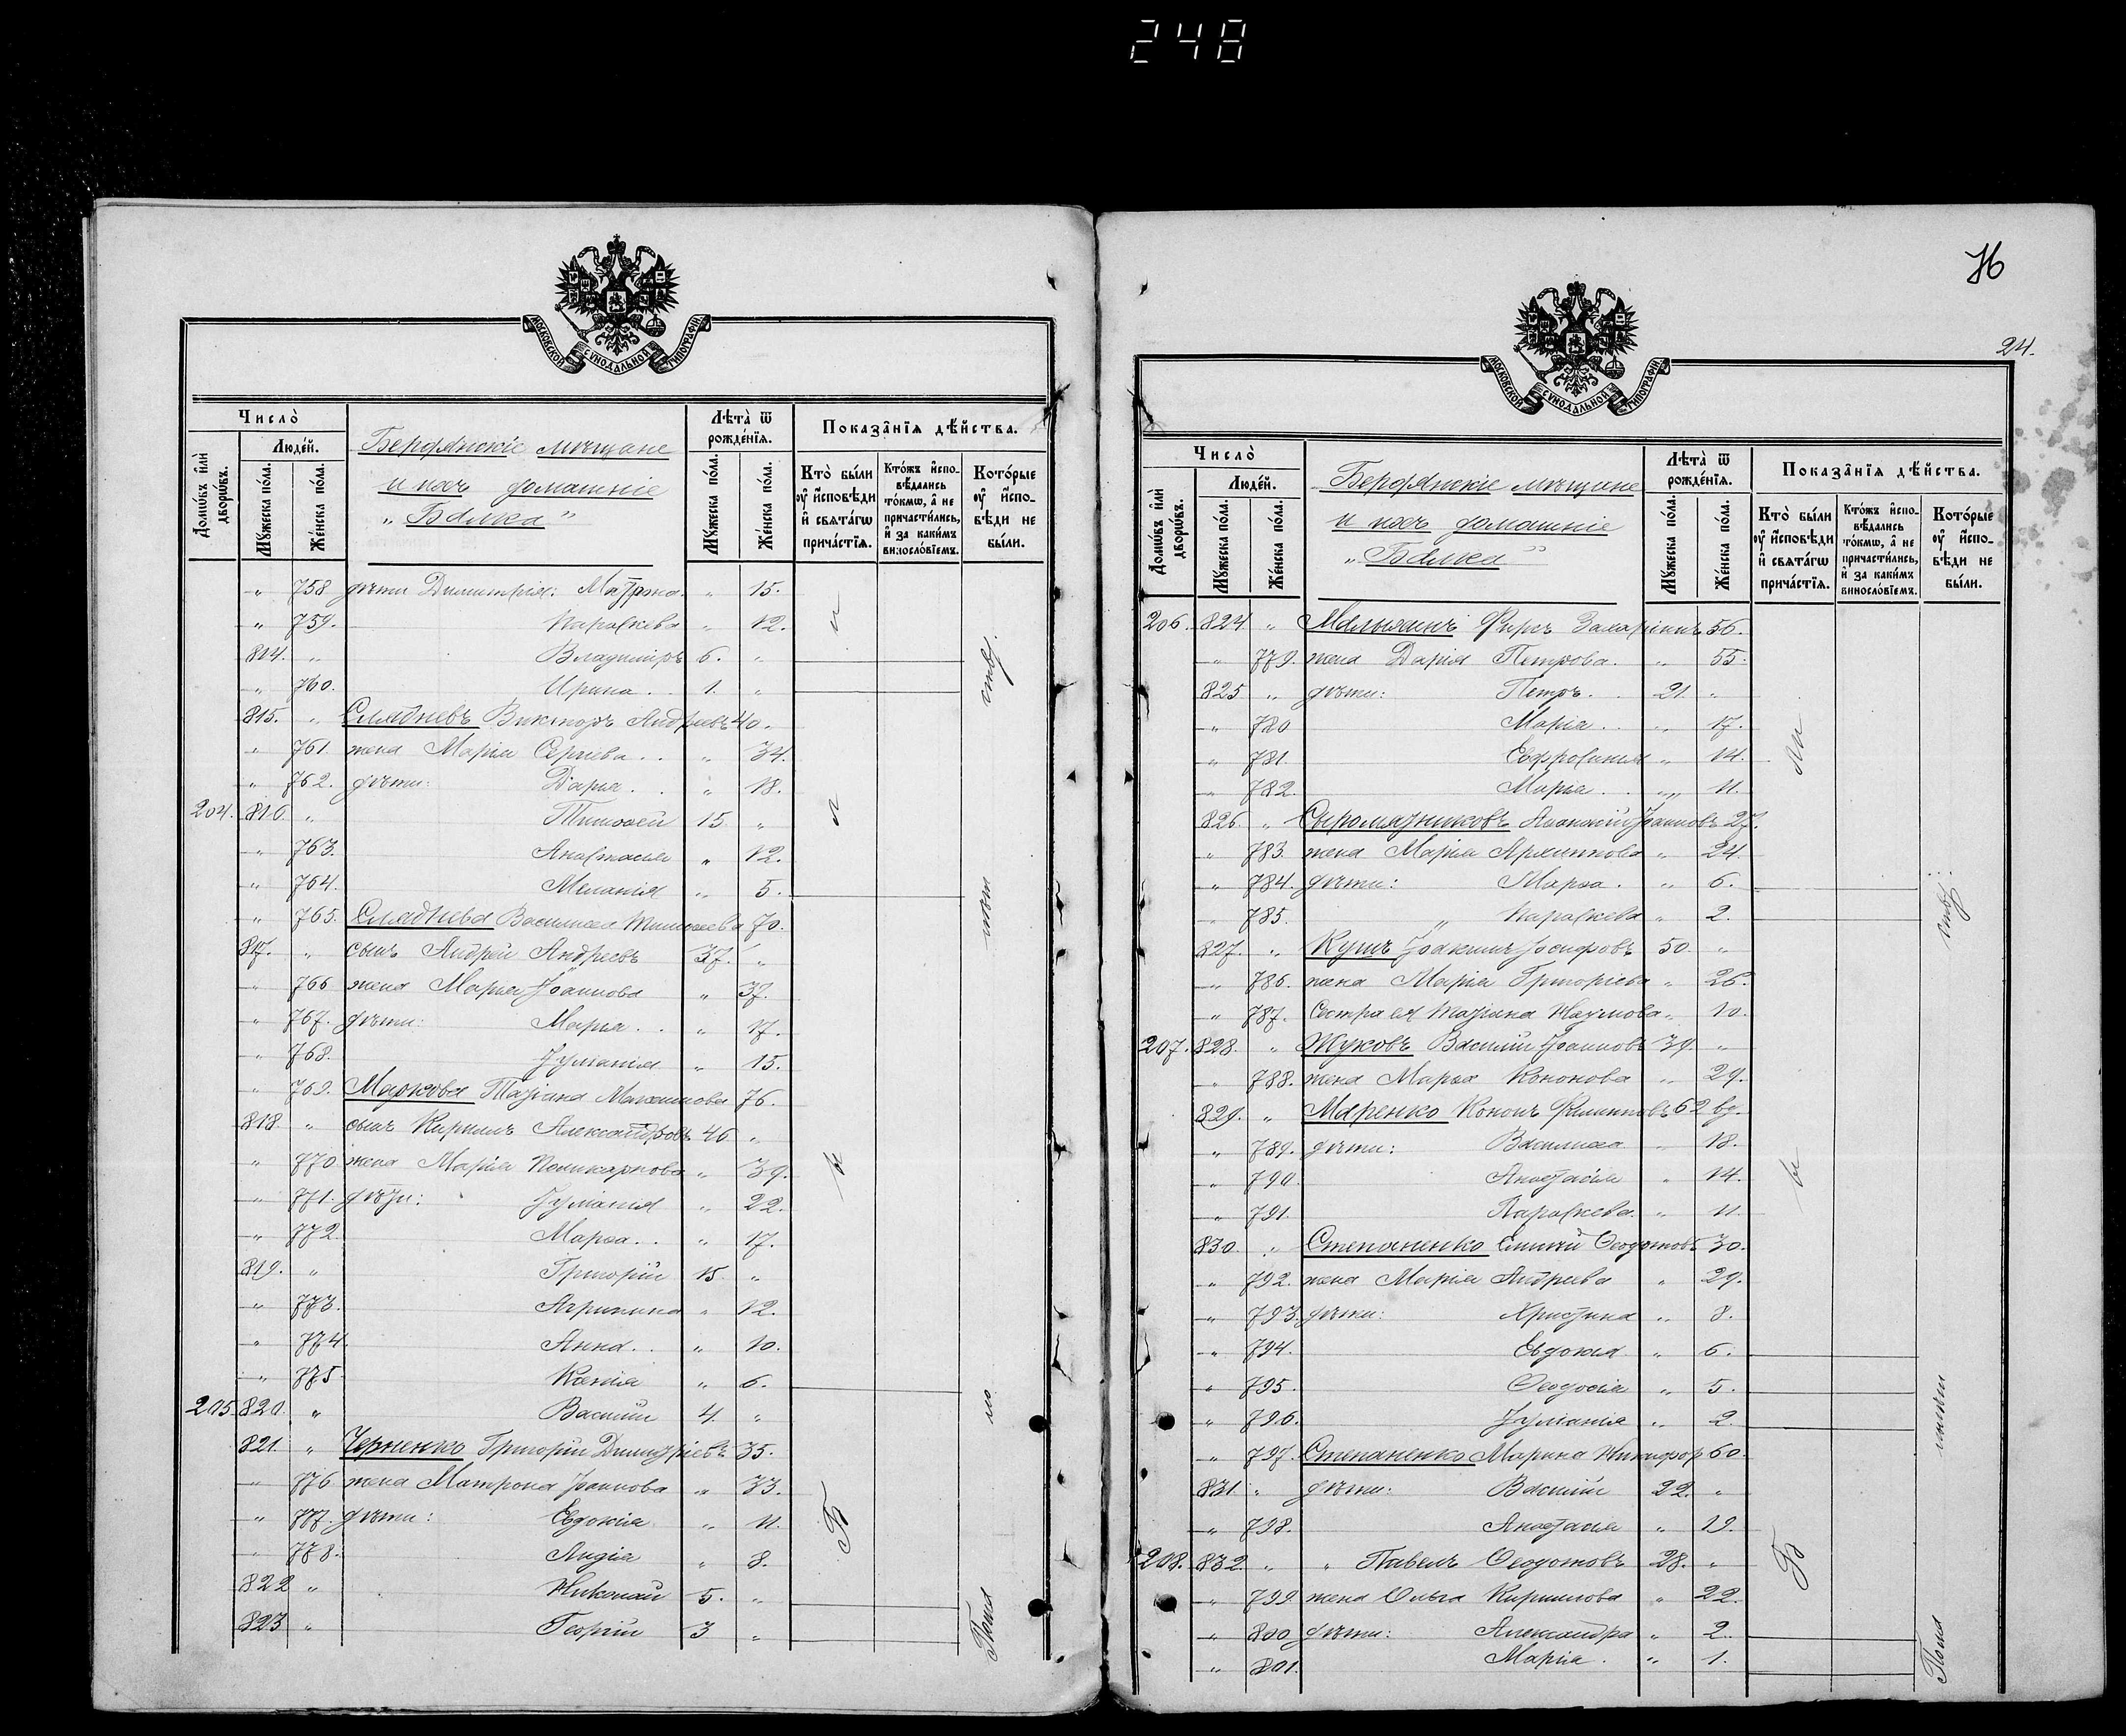 248
МОСКОВСКОЙ СѴНОДАЛЬНОЙ ТИПОГРАФІИ.
Число̀
Домѡ́въ и҆лѝ дворѡ́въ.
Люде́й.
Мꙋ́жеска по́ла.
Же́нска по́ла.
Бердянскіе мѣщане
и ихъ домашніе
„Балка“
Лѣта̀ ѿ рожде́нїѧ.
Мꙋ́жеска по́ла.
Же́нска по́ла.
Показа̑нїѧ дѣ́йства.
Кто̀ бы́ли ᲂу҆ и҆сповѣ́ди и҆ свѧта́гѡ прича́стїѧ.
Кто́жъ и҆спо-вѣ́дались то́кмѡ, а҆ не причасти́лись, и҆ за каки́мъ виносло́вїемъ.
Кото́рые ᲂу҆ и҆спо-вѣ́ди не бы́ли.
„ 758 дѣти Димитрія: Матрона „ 15.
„ 759. Параскева „ 12.
814. „ Владиміръ 6. „
„ 760. Ирина . . 1. „
815. „ Слядневъ Викторъ Андреевъ 40.
„ 761. жена Марія Сергиева . . „ 34.
„ 762. дѣти: Дарья . . „ 18.
204. 816. „ Тимоѳей 15. „
„ 763. Анастасія „ 12.
„ 764. Меланія „ 5.
„ 765. Сляднева Василиса Тимоѳеева 70.
817. „ сынъ Андрей Андреевъ 37. „
„ 766 жена Марья Іоаннова „ 37.
„ 767. дѣти: Марья . . „ 17.
„ 768. Іуліанія „ 15.
„ 769. Маркова Татіана Максимова 76.
818. „ сынъ Кириллъ Александровъ 46 „
„ 770 жена Марія Поликарпова „ 39.
„ 771. дѣти: Іуліанія „ 22.
„ 772. Марѳа . . „ 17.
819. „ Григорій 15. „
„ 773. Агрипина „ 12.
„ 774. Анна . . „ 10.
„ 775. Ксенія „ 6.
205. 820. „ Василій 4. „
821. „ Черненко Григорій Димитріевъ 35.
„ 776 жена Матрона Іоаннова „ 33.
„ 777. дѣти: Евдокія „ 11.
„ 778. Лидія „ 8.
822 „ Николай 5. „
823 „ Георгій 3 „
Б
ы
л
и
По
ма
лолѣт
ству.
76
24.
МОСКОВСКОЙ СѴНОДАЛЬНОЙ ТИПОГРАФІИ.
Число̀
Домѡ́въ и҆лѝ дворѡ́въ.
Люде́й.
Мꙋ́жеска по́ла.
Же́нска по́ла.
Бердянскіе мѣщане
и ихъ домашніе
„Балка“
Лѣта̀ ѿ рожде́нїѧ.
Мꙋ́жеска по́ла.
Же́нска по́ла.
Показа̑нїѧ дѣ́йства.
Кто̀ бы́ли ᲂу҆ и҆сповѣ́ди и҆ свѧта́гѡ прича́стїѧ.
Кто́жъ и҆спо-вѣ́дались то́кмѡ, а҆ не причасти́лись, и҆ за каки́мъ виносло́вїемъ.
Кото́рые ᲂу҆ и҆спо-вѣ́ди не бы́ли.
206. 824 „ Мальыхинъ Фирсъ Захаріинъ 56.
„ 779. жена Дарія Петрова. „ 55.
825 „ дѣти: Петръ . . 21. „
„ 780 Марія . . „ 17.
„ 781. Евфросинія „ 14.
„ 782. Марья . . „ 11.
826. „ Сыромятниковъ Аѳанасій Іоанновъ 27.
„ 783. жена Марія Архиппова „ 24.
„ 784. дѣти: Марѳа . „ 6.
„ 785. „ Параскева „ 2.
827. „ Кущъ Іоакимъ Іосифовъ 50. „
„ 786. жена Марія Григоріева „ 26.
„ 787. Сестра ея Татіана Наумова „ 10.
207. 828. „ Жуковъ Василій Іоанновъ 39. „
„ 788. жена Марѳа Кононова „ 29.
829. „ Маренко Кононъ Филипповъ 62 вд.
„ 789. дѣти: Василиса „ 18.
„ 790. Анастасія „ 14.
„ 791. Параскева. „ 11.
830. „ Степаненко Ѳеодотовъ 30.
„ 792. жена Марія Андреева „ 29.
„ 793. дѣти: Христина „ 8.
„ 794. Евдокія „ 6.
„ 795. Ѳеодосія „ 5.
„ 796. Іуліанія „ 2
„ 797. Степаненко Марина Никифор 60.
831. „ дѣти: Василій 22. „
„ 798. Анастасія „ 19.
208. 832. „ „ Павелъ Ѳеодотовъ 28. „
„ 799. жена Ольга Кириллова „ 22.
„ 800 дѣти: Александра „ 2.
„ 801. Марія . „ 1.
Б
ы
ли
По ма
лолѣт
ству.